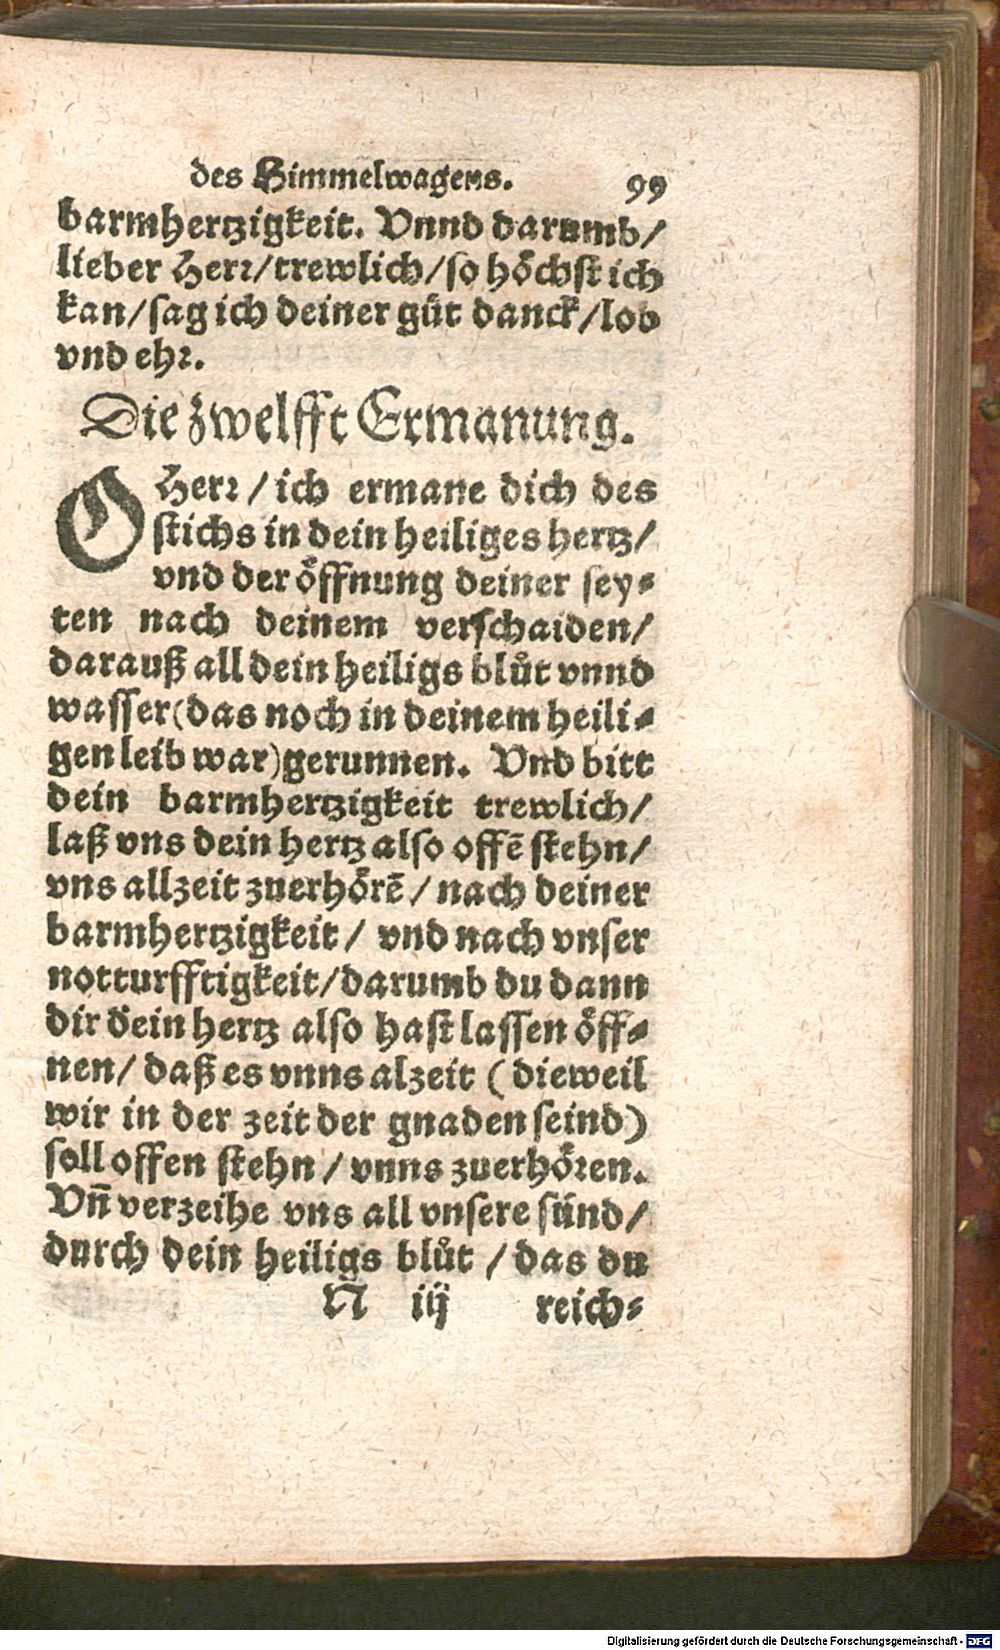 des Himmelwagens. 99
barmhertzigkeit. Vnnd darumb/
lieber Herꝛ/trewlich/so hoͤchst ich
kan/sag ich deiner guͤt danck/lob
vnd ehꝛ.
Die zwelfft Ermanung.
O Herꝛ/ich ermane dich des
stichs in dein heiliges hertz/
vnd der oͤffnung deiner sey⸗
ten nach deinem verschaiden/
darauß all dein heiligs bluͦt vnnd
wasser(das noch in deinem heili⸗
gen leib war)gerunnen. Vnd bitt
dein barmhertzigkeit trewlich/
laß vns dein hertz also offē stehn/
vns allzeit zuerhoͤrē/nach deiner
barmhertzigkeit/ vnd nach vnser
notturfftigkeit/darumb du dann
dir dein hertz also hast lassen oͤff⸗
nen/daß es vnns alzeit (dieweil
wir in der zeit der gnaden seind)
soll offen stehn/vnns zuerhoͤꝛen.
Vñ verzeihe vns all vnsere sünd/
durch dein heiligs bluͦt/das du
N iij reich⸗
Digitalisierung gefördert durch die Deutsche Forschungsgemeinschaft - DFG